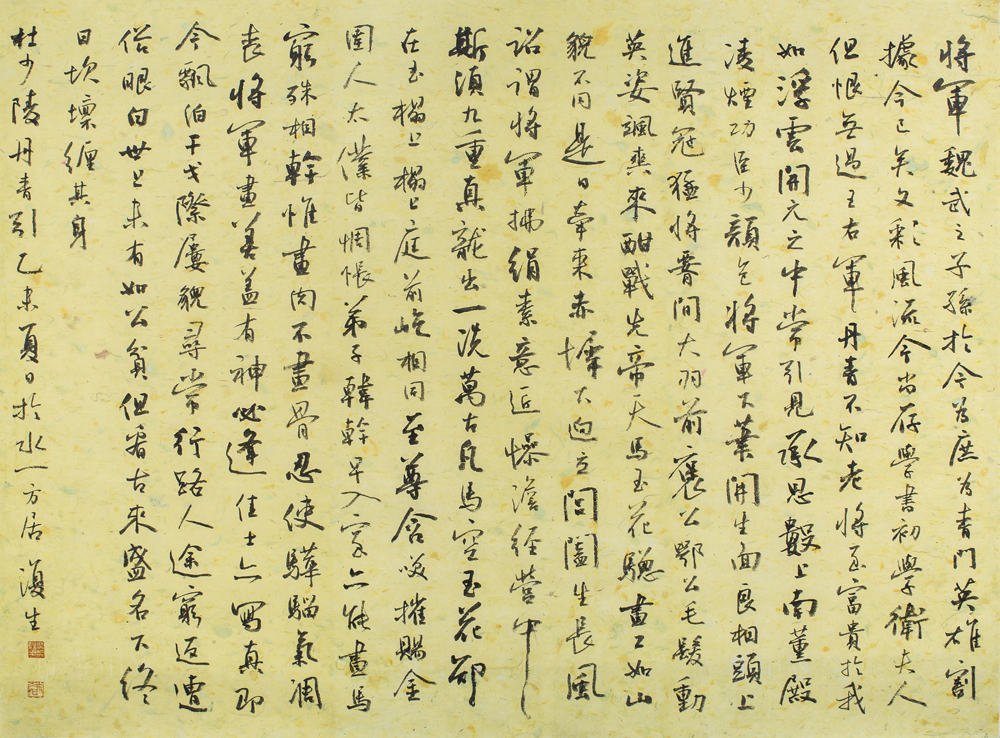 將軍魏武之子孫於今為庶為青門英雄割
據今已矣文彩風流今尚存學書初學衛夫人
但恨無過王右軍丹青不知老將至富貴於我
如浮雲開元之中常引見承恩數上南薰殿
凌煙功臣少顏色將軍下筆開生面良相頭上
進賢冠猛將腰間大羽箭褒公鄂公毛髮動
英姿颯爽來酣戰先帝天馬玉花驄畫工如山
貌不同是日牽來赤墀下迥立閶闔生長風
詔謂將軍拂絹素意匠慘澹經營中
斯須九重真龍出一洗萬古凡馬空玉花卻
在玉榻上榻上庭前屹相向至尊含笑催賜金
圉人太僕皆惆悵弟子韓幹早入室亦能畫馬
窮殊相幹惟畫肉不畫骨忍使驊騮氣凋
喪將軍畫善蓋有神必逢佳士亦寫真即
今飄泊干戈際屢貌尋常行路人途窮返遭
俗眼白世上未有如公貧但看古來盛名下終
日坎壈纏其身
杜少陵丹青引乙未夏日於水一方居復生